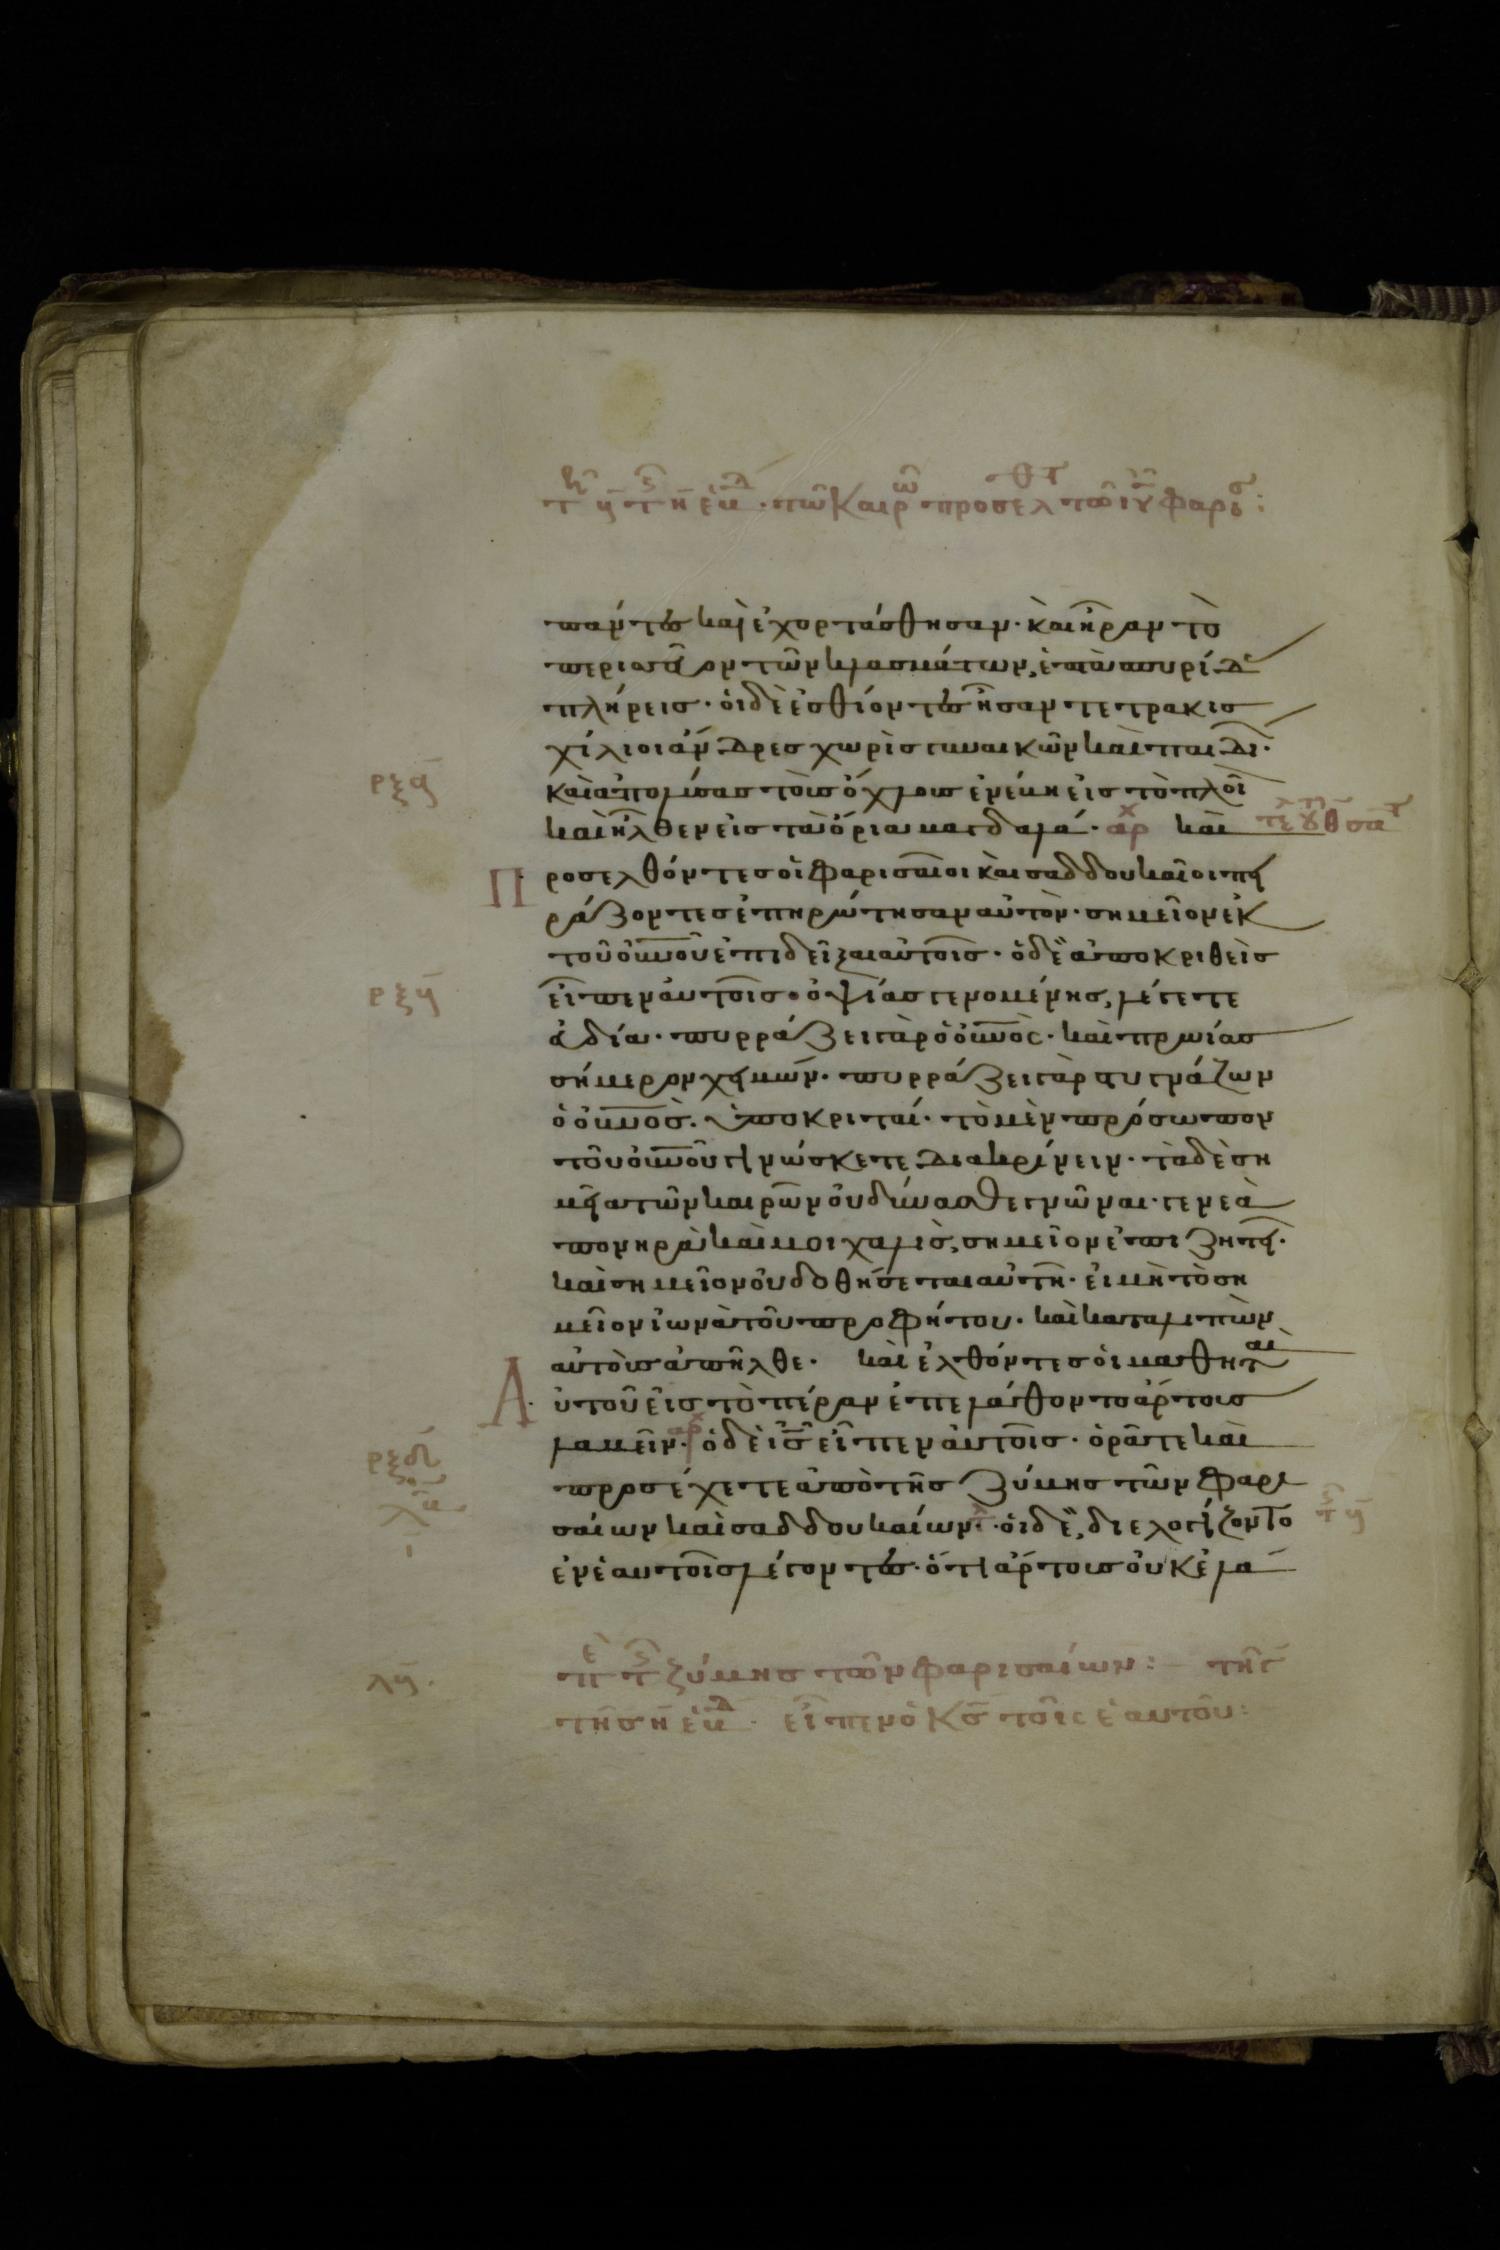 τῇ γ τῆς η ἑβδ · τῶ Καιρῶ προσελθ τῶ ιυ φαρισ :
παντες και ἐχορτάσθησαν · καὶ ἦραν τὸ
περισσεῦον τῶν κλασμάτων, ἑπτὰ σπυρίδ
πλήρεις · οἱ δὲ ἐσθίοντες ἦσαν τετρακισ
χίλιοι ἄνδρες χωρὶς γυναικῶν καὶ παιδί ·
ρξα
Καὶ ἀπολύσας τοὺς ὄχλους ἐνέβη εἰς τὸ πλοῖ
καὶ ἦλθεν εἰς τὰ ὅρια μαγδαλά · αρχ και
Προσελθόντες οἱ φαρισαῖοι καὶ σαδδουκαῖοι πει
ράζοντες ἐπηρώτησαν αὐτὸν · σημεῖον ἐκ
τοῦ οὐνοῦ ἐπιδεῖξαι αὐτοῖς · ὁ δὲ ἀποκριθεὶς
ρξγ
εἶπεν αὐτοῖς · ὀψίας γενομένης, λέγετε
εὐδία · πυρράζει γὰρ ὁ οὐνὸς · καὶ πρωίας
σήμερον χειμών · πυρράζει γὰρ στυγνάζων
ὁ οὐνὸς · ὑποκριταί · τὸ μὲν πρόσωπον
τοῦ οὐνοῦ γινώσκετε διακρίνειν · τὰ δὲ ση
μεῖα τῶν καιρῶν οὐ δύνασθε γνῶναι · γενεὰ
πονηρὰ καὶ μοιχαλὶς, σημεῖον ἐπιζητεῖ ·
καὶ σημεῖον οὐ δοθήσεται αὐτῇ · εἰ μὴ τὸ ση
μεῖον ἰωνὰ τοῦ προφήτου · καὶ καταλιπὼν
αὐτοὺς ἀπῆλθε · καὶ ἐλθόντες οἱ μαθηταὶ
Αὐτοῦ εἰς τὸ πέραν ἐπελάθοντο ἄρτους
λαβεῖν · αρχ ὁ δὲ ις εἶπεν αὐτοῖς · ὁρᾶτε καὶ
ρξδ
προσέχετε ἀπὸ τῆς ζύμης τῶν φαρι
σαίων καὶ σαδδουκαίων · οἱ δὲ, διελογίζοντο
ἐν ἑαυτοῖς λέγοντες · ὅτι ἄρτους οὐκ ἐλά
λγ · περὶ τῆς ζύμης τῶν φαρισαίων :
τῆς η ἑβδ · εἶπεν ὁ Κς τοῖς ἑαυτοῦ :